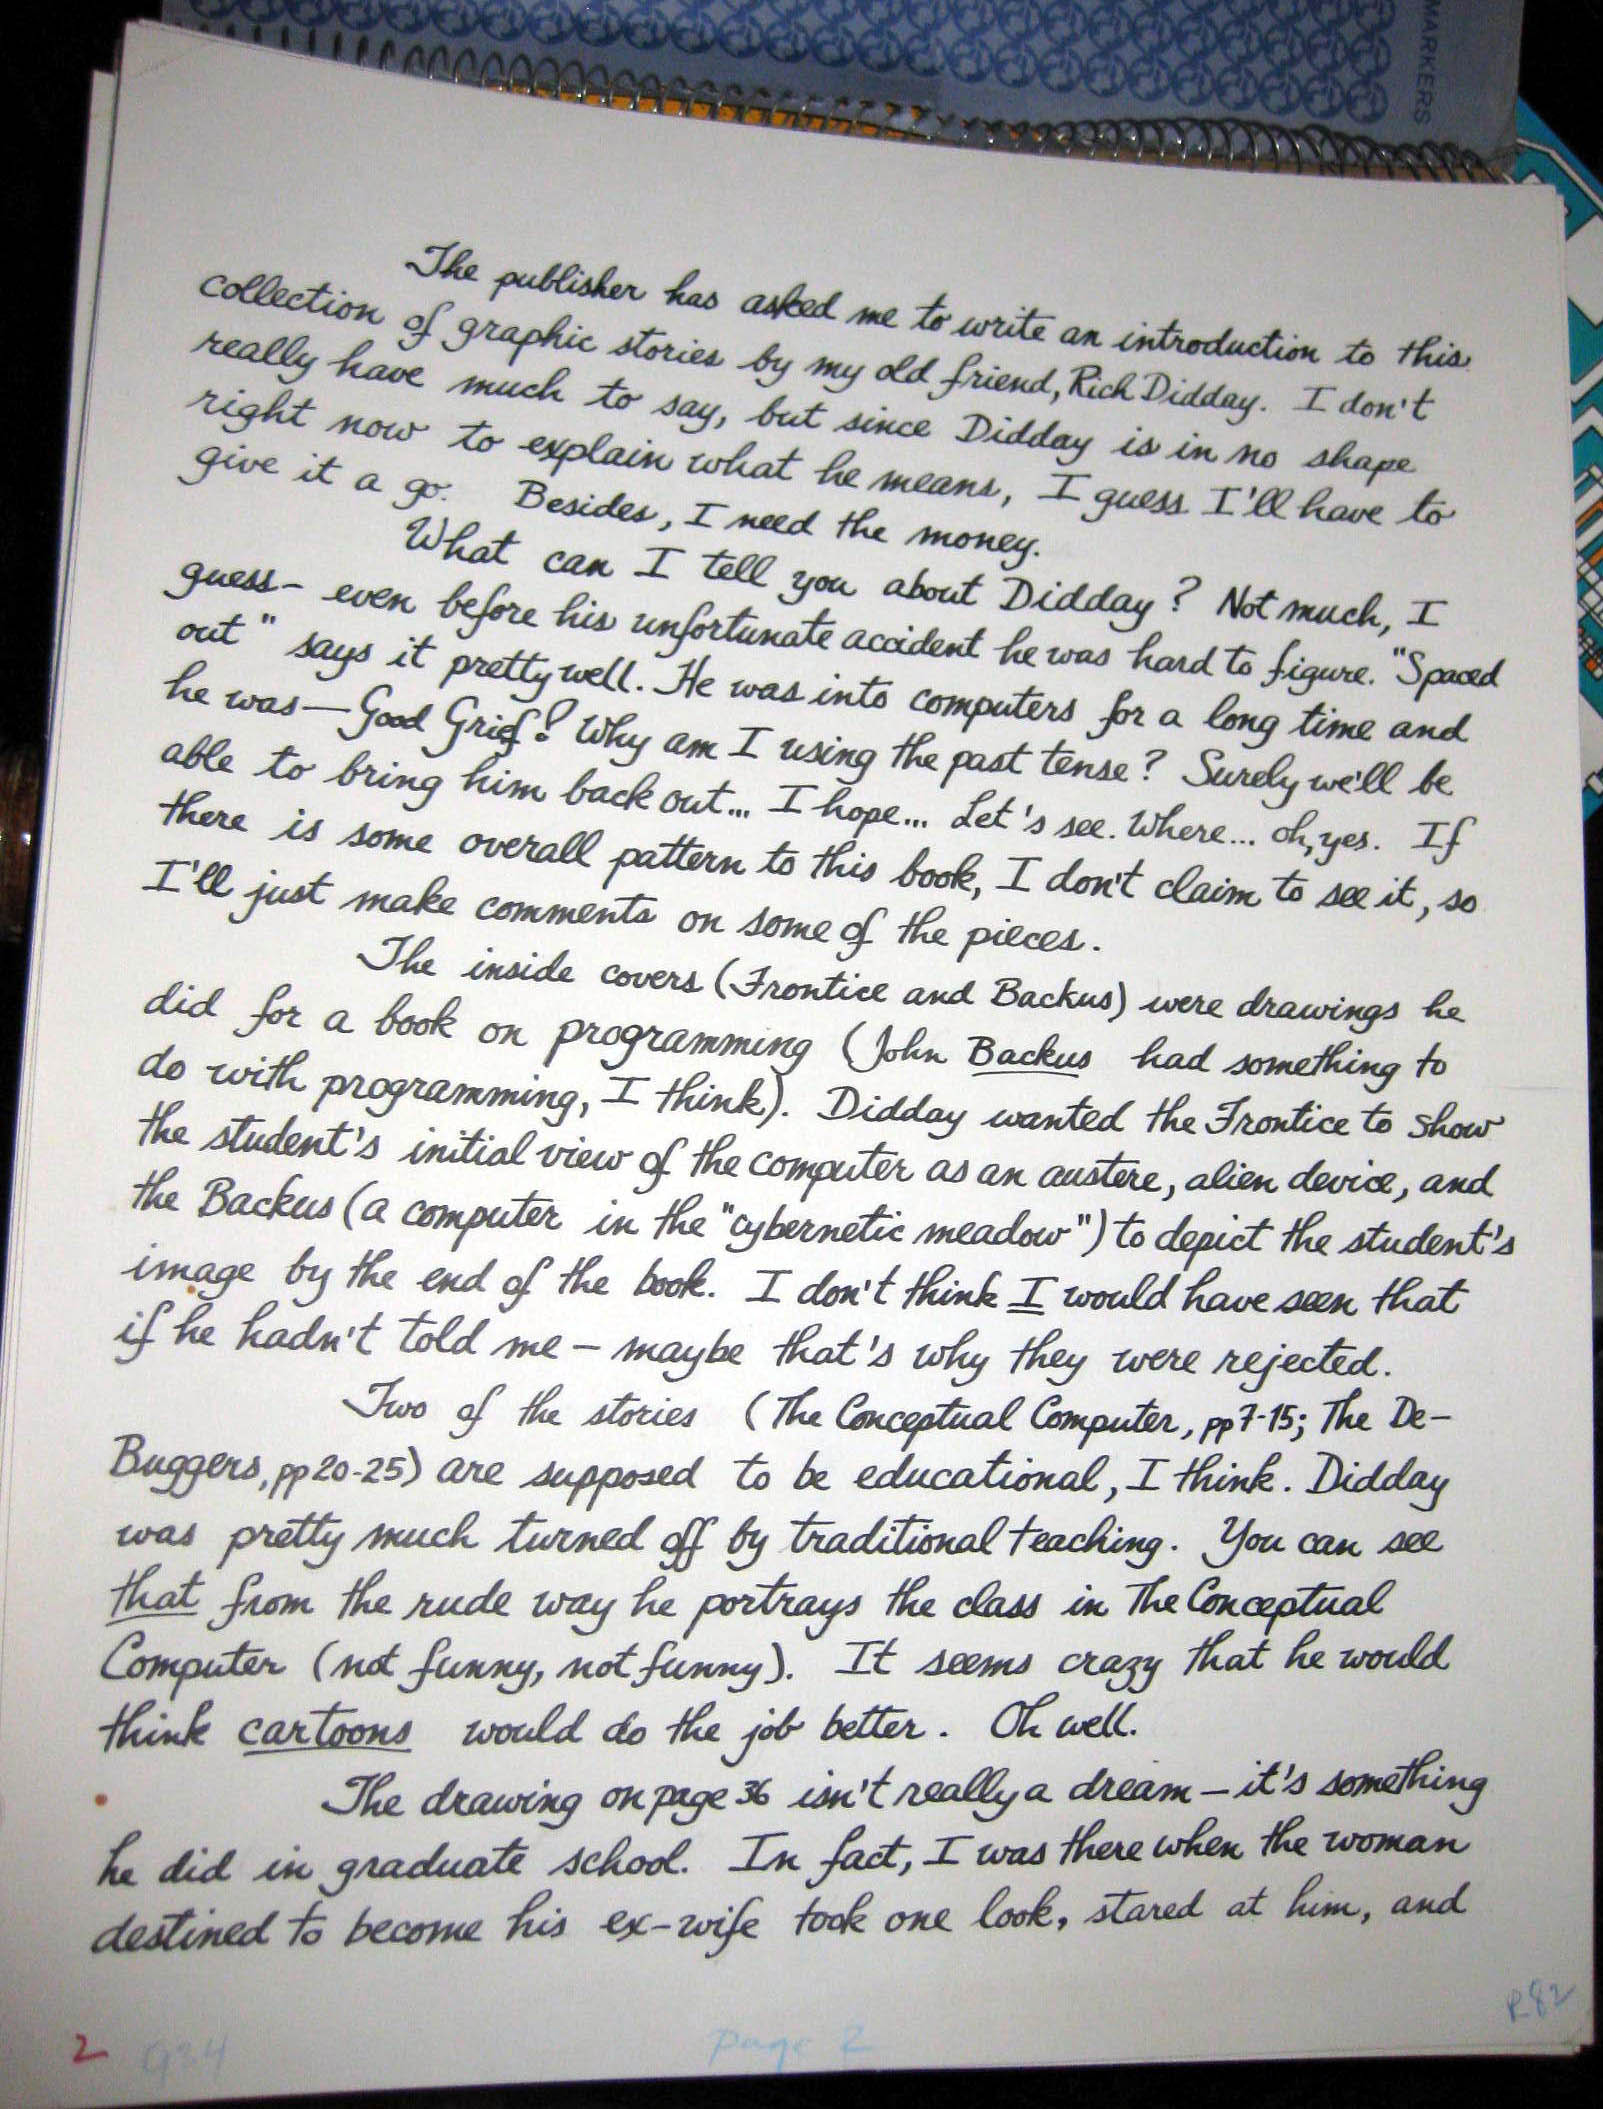 MARKERS
The publisher has asked me to write an introduction to this
collection of graphic stories by my old friend, Rich Didday. I don't
really have much to say, but since Didday is in no shape
right now to explain what he means, I guess I'll have to
give it a go. Besides, I need the money.
What can I tell you about Didday? Not much, I
guess- even before his unfortunate accident he was hard to figure. "Spaced
out" says it pretty well. He was into computers for a long time and
he was—Good Grief! Why am I using the past tense? Surely we'll be
able to bring him back out... I hope... Let's see. Where... oh, yes. If
there is some overall pattern to this book, I don't claim to see it, so
I'll just make comments on some of the pieces.
The inside covers (Frontice and Backus) were drawings he
did for a book on programming (John Backus had something to
do with programming, I think). Didday wanted the Frontice to show
the student's initial view of the computer as an austere, alien device, and
the Backus (a computer in the "cybernetic meadow") to depict the student's
image by the end of the book. I don't think I would have seen that
if he hadn't told me - maybe that's why they were rejected.
Two of the stories (The Conceptual Computer, pp 7-15; The De-
Buggers, pp 20-25) are supposed to be educational, I think. Didday
was pretty much turned off by traditional teaching. You can see
that from the rude way he portrays the class in The Conceptual
Computer (not funny, not funny). It seems crazy that he would
think cartoons would do the job better. Oh well.
The drawing on page 36 isn't really a dream - it's something
he did in graduate school. In fact, I was there when the woman
destined to become his ex-wife took one look, stared at him, and
2 G34 page 2 R82